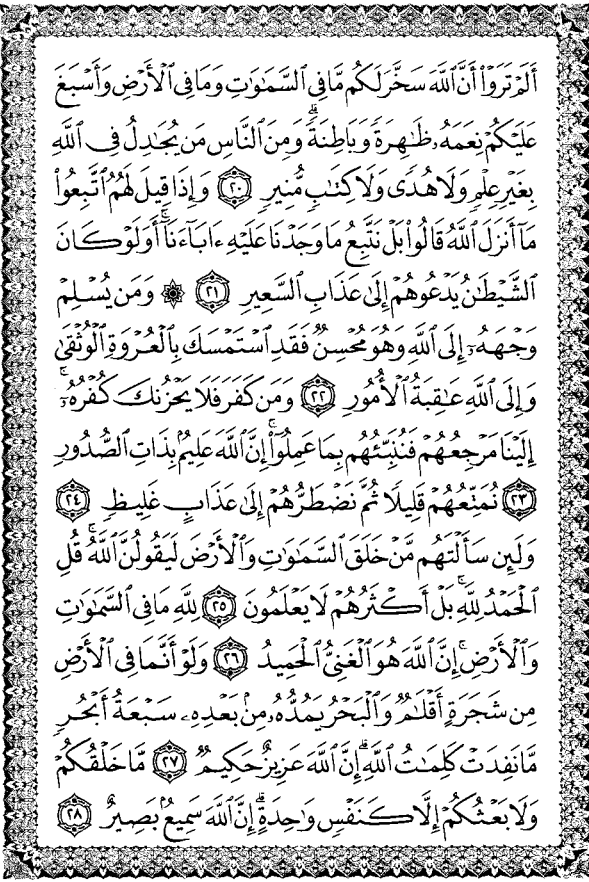 أَلَمْ تَرَوْا۟ أَنَّ ٱللَّهَ سَخَّرَ لَكُم مَّا فِى ٱلسَّمَـٰوَٰتِ وَمَا فِى ٱلْأَرْضِ وَأَسْبَغَ
عَلَيْكُمْ نِعَمَهُۥ ظَـٰهِرَةً وَبَاطِنَةً ۗ وَمِنَ ٱلنَّاسِ مَن يُجَـٰدِلُ فِى ٱللَّهِ
بِغَيْرِ عِلْمٍ وَلَا هُدًى وَلَا كِتَـٰبٍ مُّنِيرٍ ٢٠ وَإِذَا قِيلَ لَهُمُ ٱتَّبِعُوا۟
مَآ أَنزَلَ ٱللَّهُ قَالُوا۟ بَلْ نَتَّبِعُ مَا وَجَدْنَا عَلَيْهِ ءَابَآءَنَآ ۚ أَوَلَوْ كَانَ
ٱلشَّيْطَـٰنُ يَدْعُوهُمْ إِلَىٰ عَذَابِ ٱلسَّعِيرِ ٢١ ۞ وَمَن يُسْلِمْ
وَجْهَهُۥٓ إِلَى ٱللَّهِ وَهُوَ مُحْسِنٌ فَقَدِ ٱسْتَمْسَكَ بِٱلْعُرْوَةِ ٱلْوُثْقَىٰ ۗ
وَإِلَى ٱللَّهِ عَـٰقِبَةُ ٱلْأُمُورِ ٢٢ وَمَن كَفَرَ فَلَا يَحْزُنكَ كُفْرُهُۥٓ ۚ
إِلَيْنَا مَرْجِعُهُمْ فَنُنَبِّئُهُم بِمَا عَمِلُوٓا۟ ۚ إِنَّ ٱللَّهَ عَلِيمٌۢ بِذَاتِ ٱلصُّدُورِ
٢٣ نُمَتِّعُهُمْ قَلِيلًا ثُمَّ نَضْطَرُّهُمْ إِلَىٰ عَذَابٍ غَلِيظٍ ٢٤
وَلَئِن سَأَلْتَهُم مَّنْ خَلَقَ ٱلسَّمَـٰوَٰتِ وَٱلْأَرْضَ لَيَقُولُنَّ ٱللَّهُ ۚ قُلِ
ٱلْحَمْدُ لِلَّهِ ۚ بَلْ أَكْثَرُهُمْ لَا يَعْلَمُونَ ٢٥ لِلَّهِ مَا فِى ٱلسَّمَـٰوَٰتِ
وَٱلْأَرْضِ ۚ إِنَّ ٱللَّهَ هُوَ ٱلْغَنِىُّ ٱلْحَمِيدُ ٢٦ وَلَوْ أَنَّمَا فِى ٱلْأَرْضِ
مِن شَجَرَةٍ أَقْلَـٰمٌ وَٱلْبَحْرُ يَمُدُّهُۥ مِنۢ بَعْدِهِۦ سَبْعَةُ أَبْحُرٍ
مَّا نَفِدَتْ كَلِمَـٰتُ ٱللَّهِ ۗ إِنَّ ٱللَّهَ عَزِيزٌ حَكِيمٌ ٢٧ مَّا خَلْقُكُمْ
وَلَا بَعْثُكُمْ إِلَّا كَنَفْسٍ وَٰحِدَةٍ ۗ إِنَّ ٱللَّهَ سَمِيعٌۢ بَصِيرٌ ٢٨